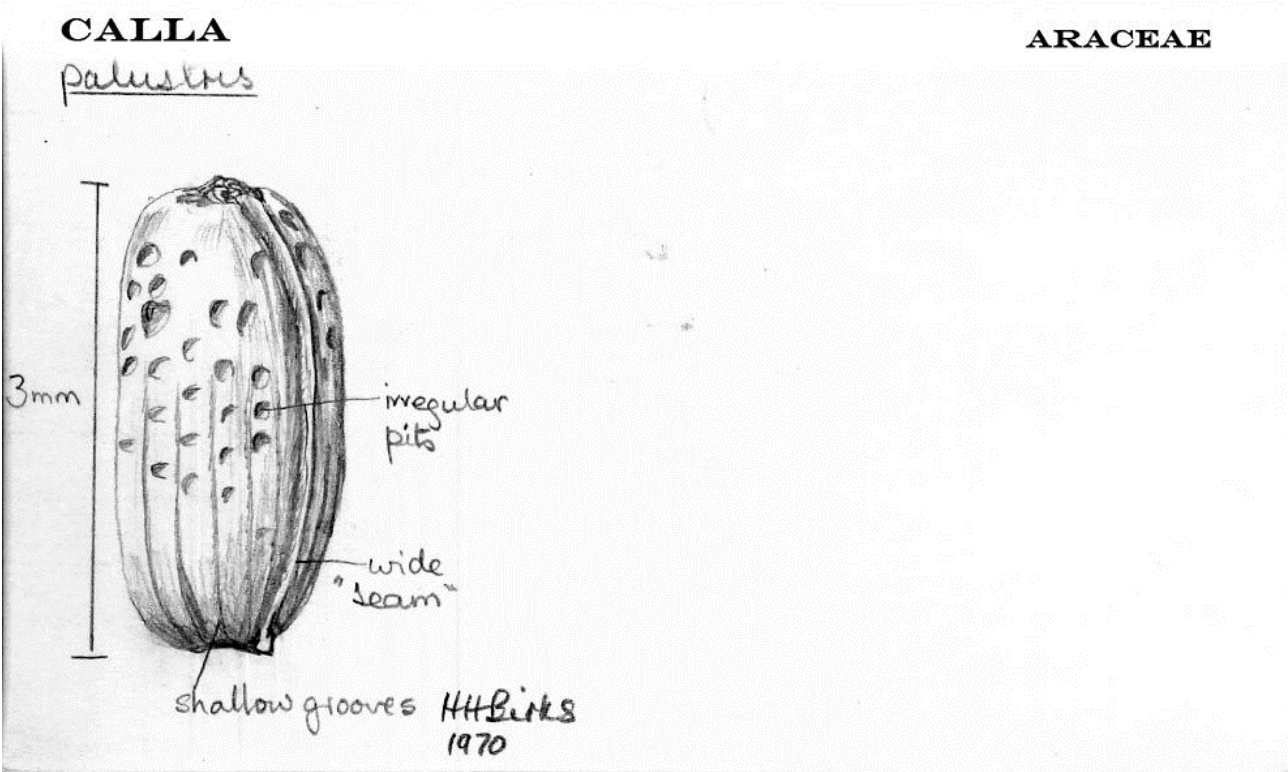 CALLA
ARACEAE
palustris
3mm
irregular
pits
wide
"seam"
shallow grooves
HHBirks
1970